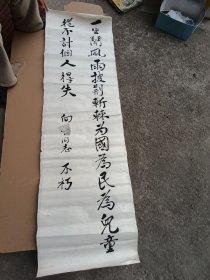 一生闖風雨披荆斬棘為國為民為兒童
從不計個人得失 向同志 不朽